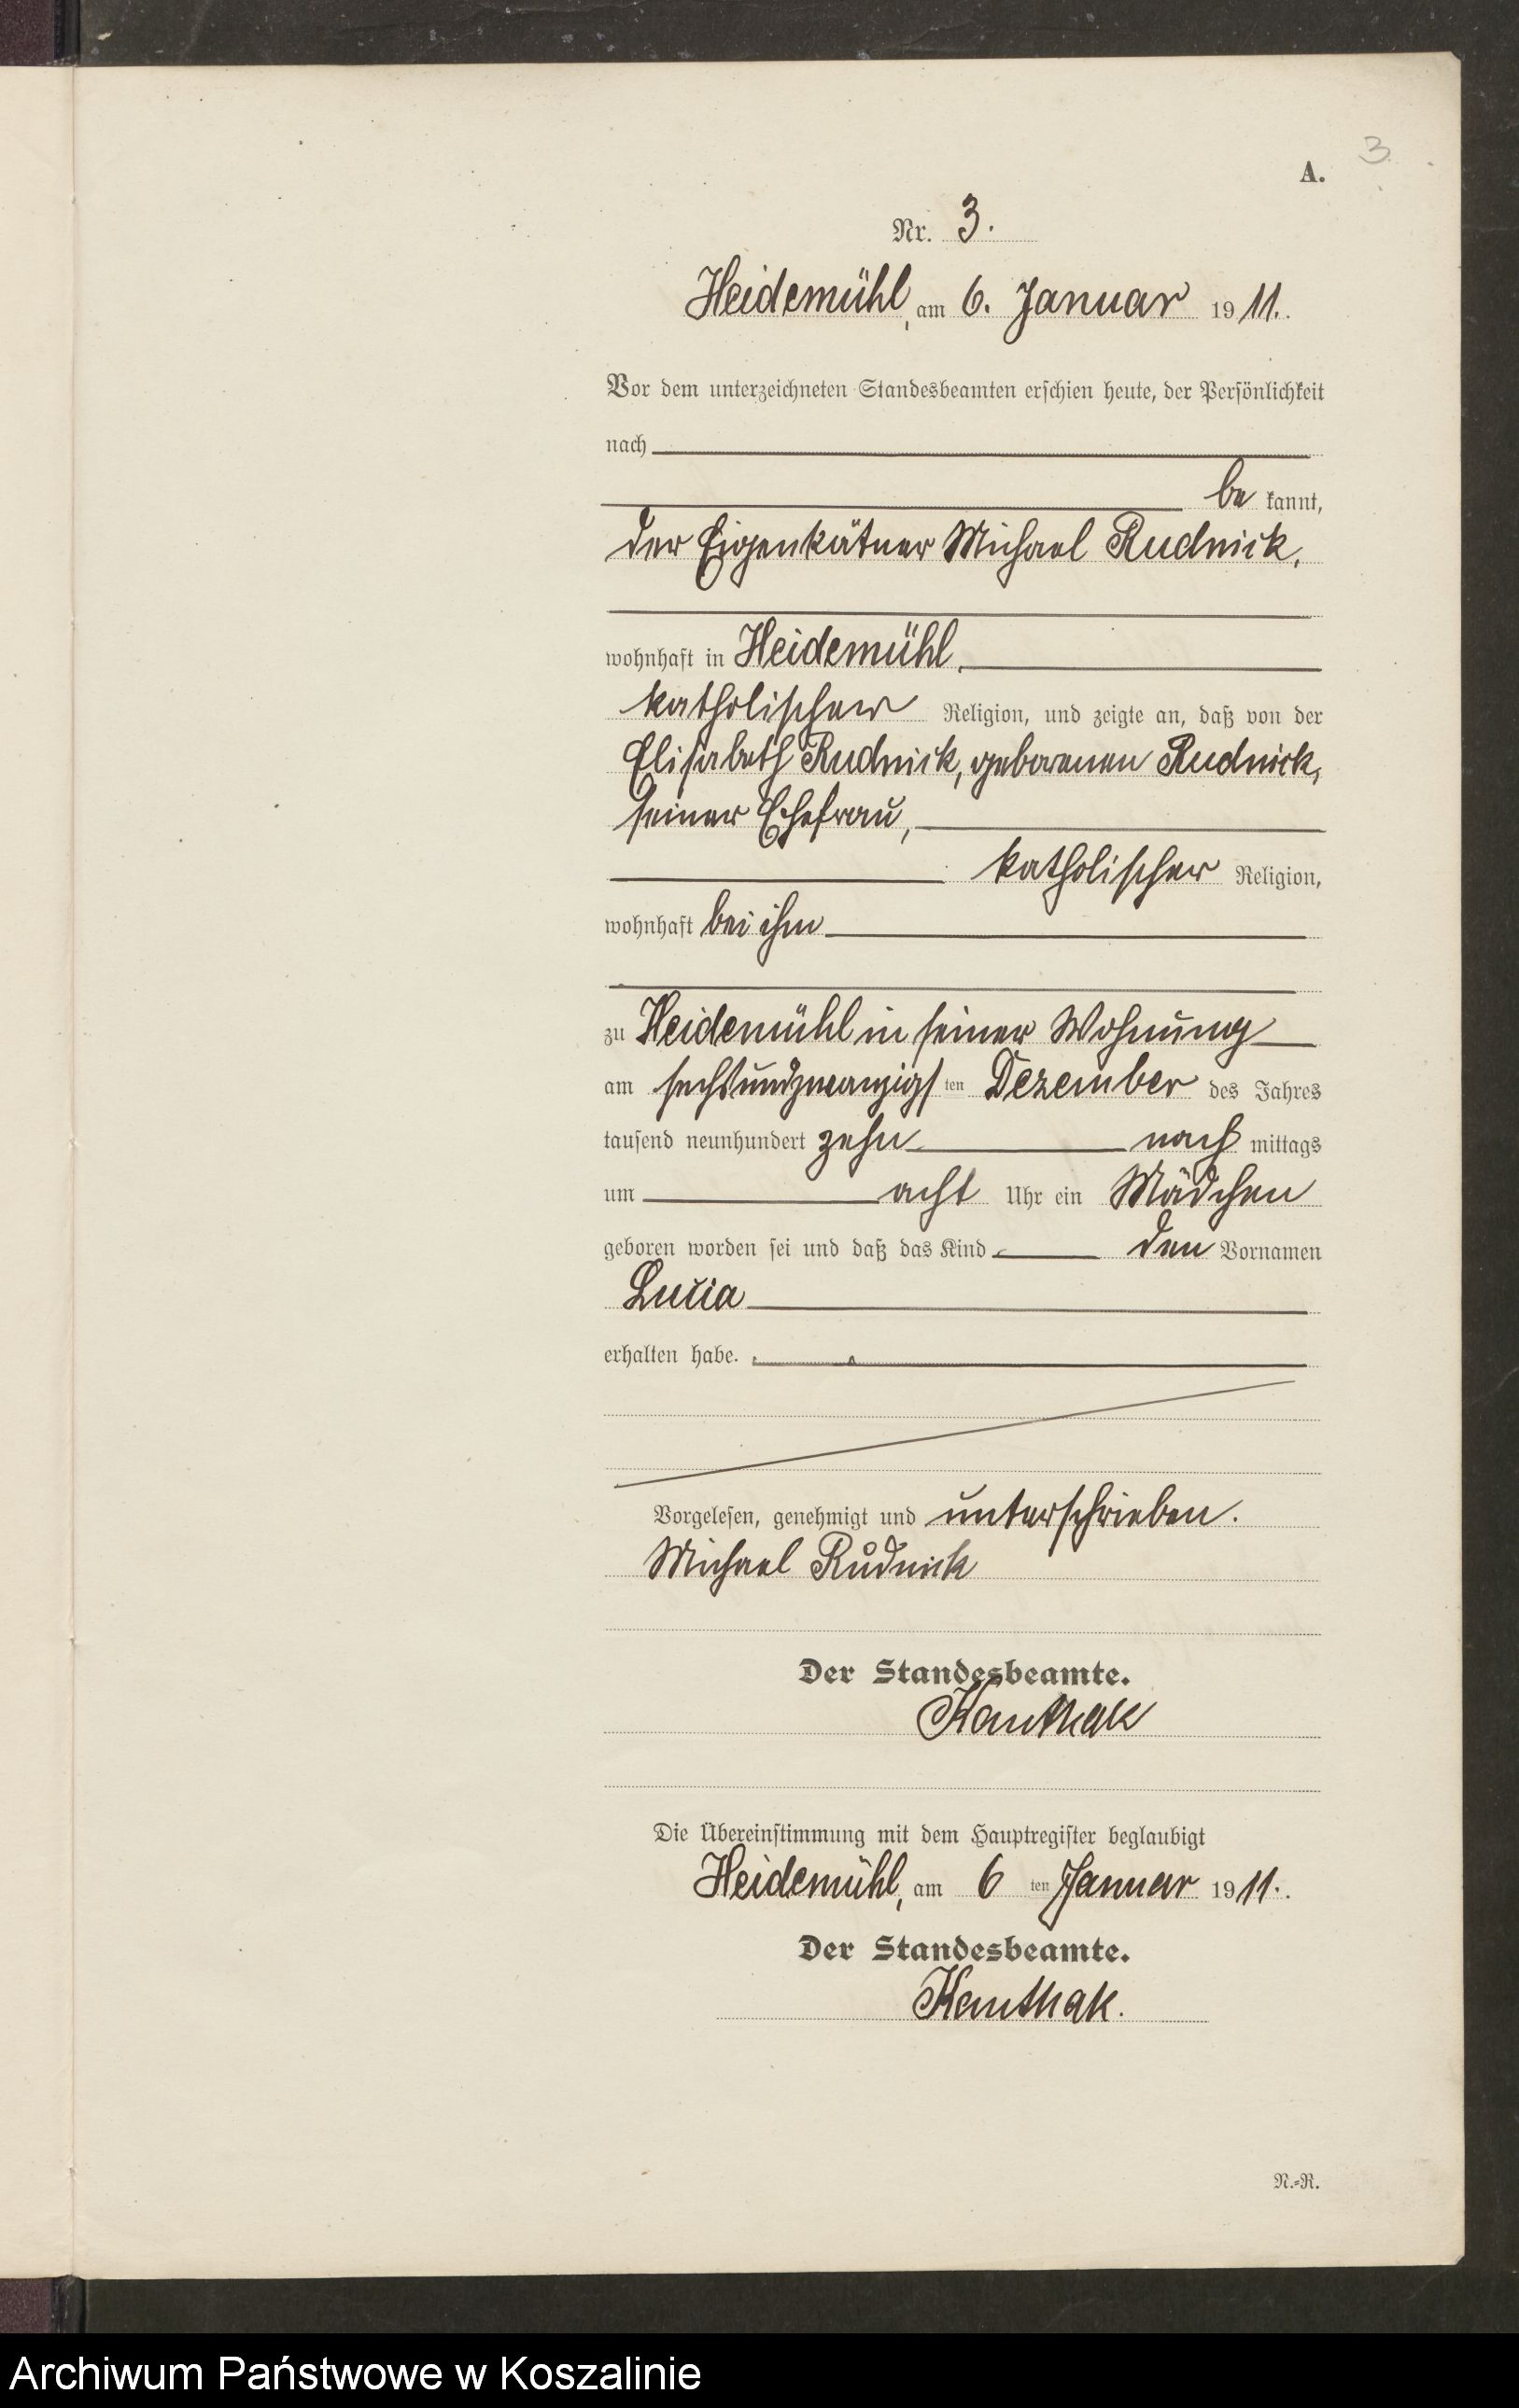 3.
A.
Nr. 3.
Heidemühl, am 6. Januar 1911.
Vor dem unterzeichneten Standesbeamten erschien heute, der Persönlichkeit
nach
be kannt,
der Eigenkätner Michael Rudnick,
wohnhaft in Heidemühl,
katholischer Religion, und zeigte an, daß von der
Elisabeth Rudnick, geborenen Rudnick,
seiner Ehefrau,
katholischer Religion,
wohnhaft bei ihm
zu Heidemühl in seiner Wohnung
am sechsundzwanzigsten Dezember des Jahres
tausend neunhundert zehn nach mittags
um acht Uhr ein Mädchen
geboren worden sei und daß das Kind den Vornamen
Lucia
erhalten habe.
Vorgelesen, genehmigt und unterschrieben.
Michael Rudnick
Der Standesbeamte.
Kanthak
Die Übereinstimmung mit dem Hauptregister beglaubigt
Heidemühl, am 6 ten Januar 1911.
Der Standesbeamte.
Kanthak.
N.-R.
Archiwum Państwowe w Koszalinie